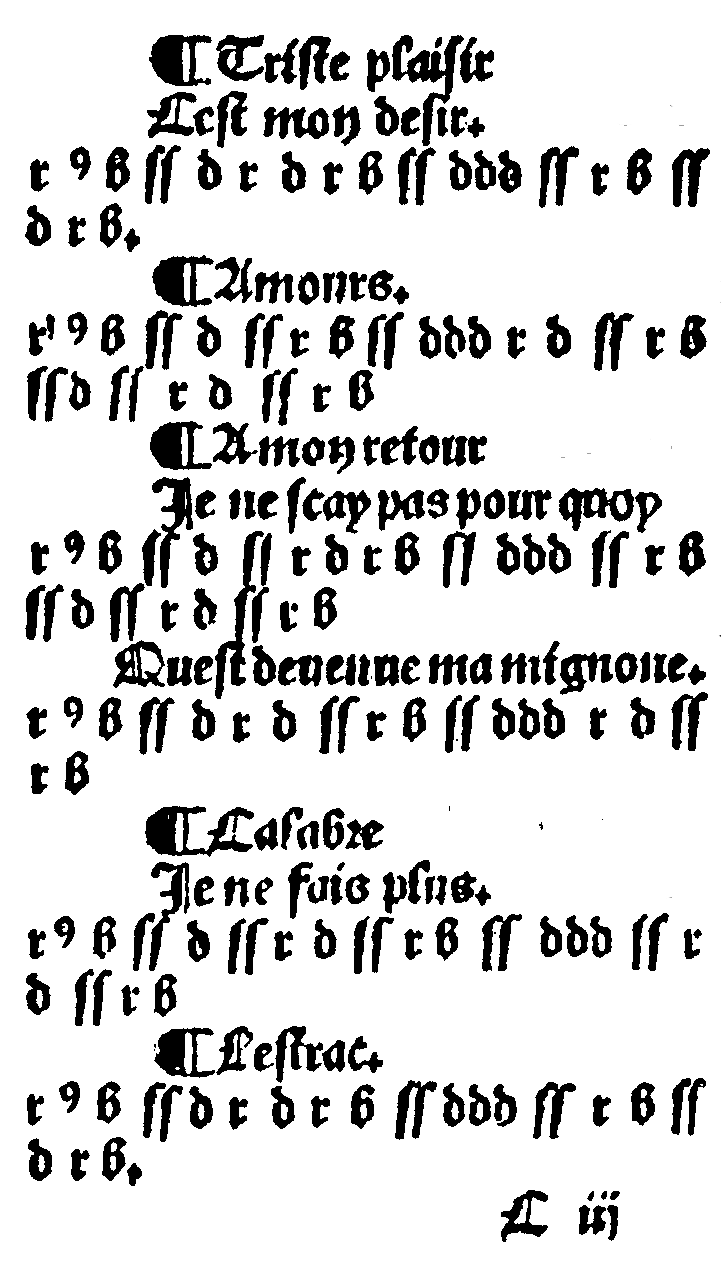 ¶ Triste plaisir
Cest mon desir.
r ꝯ b ſſ d r d r b ſſ ddd ſſ r b ſſ
d r b.
¶ Amours.
r ꝯ b ſſ d ſſ r b ſſ ddd r d ſſ r b
ſſ d ſſ r d ſſ r b
¶ A mon retour
Je ne ſcay pas pour quoy
r ꝯ b ſſ d ſſ r d r b ſſ ddd ſſ r b
ſſ d ſſ r d ſſ r b
Queſt deuenue ma mignone.
r ꝯ b ſſ d r d ſſ r b ſſ ddd r d ſſ
r b
¶ Calabre
Je ne fais plus.
r ꝯ b ſſ d ſſ r d ſſ r b ſſ ddd ſſ r
d ſſ r b
¶ Leſtrac.
r ꝯ b ſſ d r d r b ſſ ddd ſſ r b ſſ
d r b.
C iij